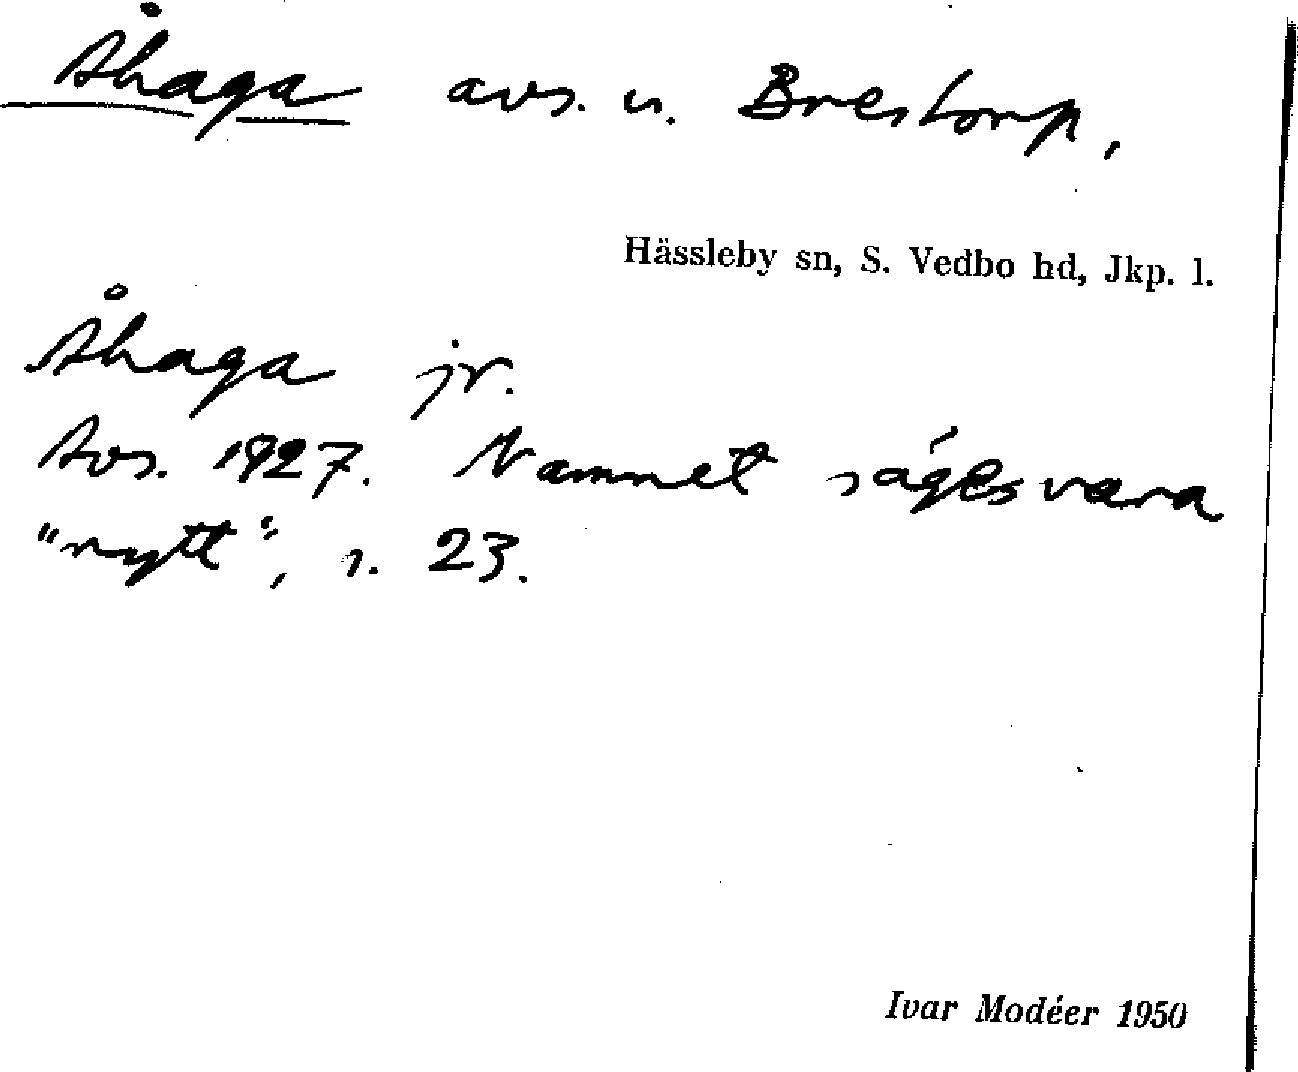 Åhaga avs. u. Brestorp,
Hässleby sn, S. Vedbo hd, Jkp. l.
Åhaga jr.
Avs. 1927. Namnet säges vara
"nytt", s. 23.
Ivar Modéer 1950